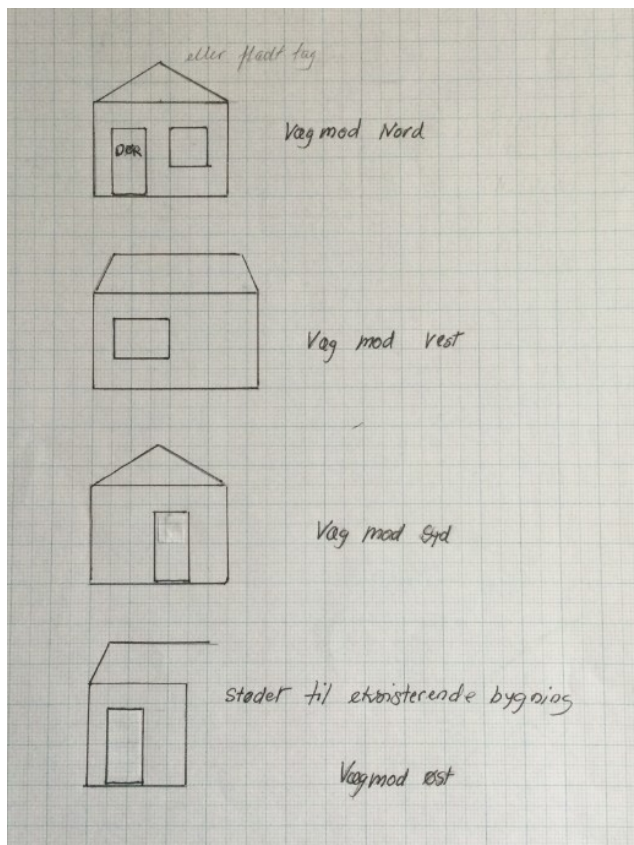 eller fladt tag
DØR
Væg mod Nord
Væg mod Vest
Væg mod Syd
Stødet til eksisterende bygning
Væg mod øst